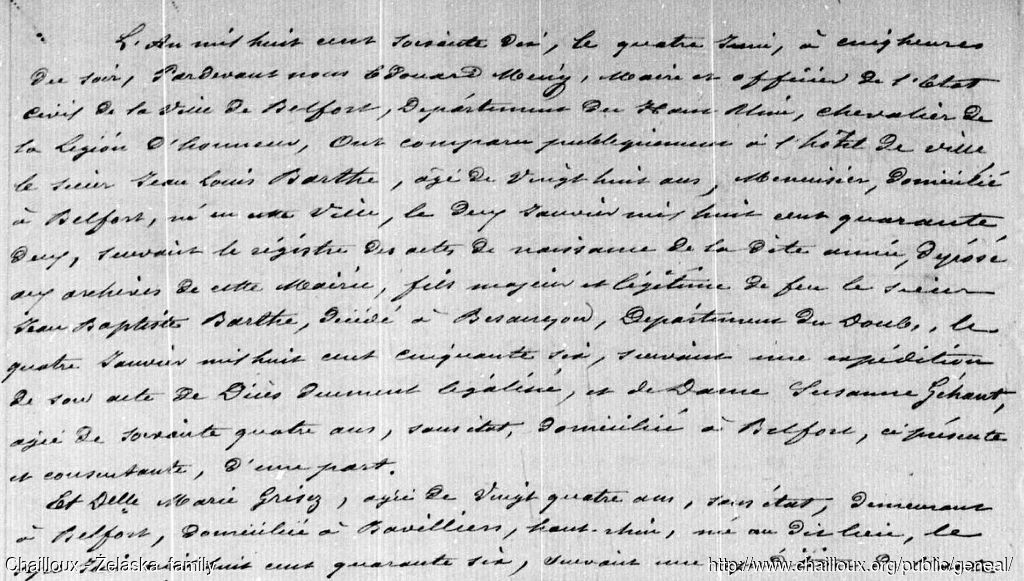 L'An mil huit cent soixante dix, le quatre Juin, à cinq heures
du soir, Pardevant nous Edouard Mény, Maire et officier de l'Etat
Civil de la Ville de Belfort, Département du Haut Rhin, chevalier de
la Légion d'honneur, Ont comparu publiquement à l'hôtel de ville
le sieur Jean Louis Barthe, âgé de Vingt huit ans, Menuisier, domicilié
à Belfort, né en cette Ville, le deux Janvier mil huit cent quarante
deux, suivant le régistre des actes de naissance de la dite année, déposé
aux archives de cette Mairie, fils majeur et légitime de feu le sieur
Jean Baptiste Barthe, décédé à Besançon, Département du Doubs, le
quatre Janvier mil huit cent cinquante six, suivant une expédition
de son acte de Décès dûment légalisé, et de Dame Susanne Géhant,
agée de soixante quatre ans, sans état, domiciliée à Belfort, ci présente
et consentante, d'une part.
Et Delle Marie Grisez, agée de Vingt quatre ans, sans état, demeurant
à Belfort, domiciliée à Bavilliers, haut-rhin, née au dit lieu, le
mil huit cent quarante six, suivant une
Chailloux - Żelaska family
http://www.chailloux.org/public/geneal/